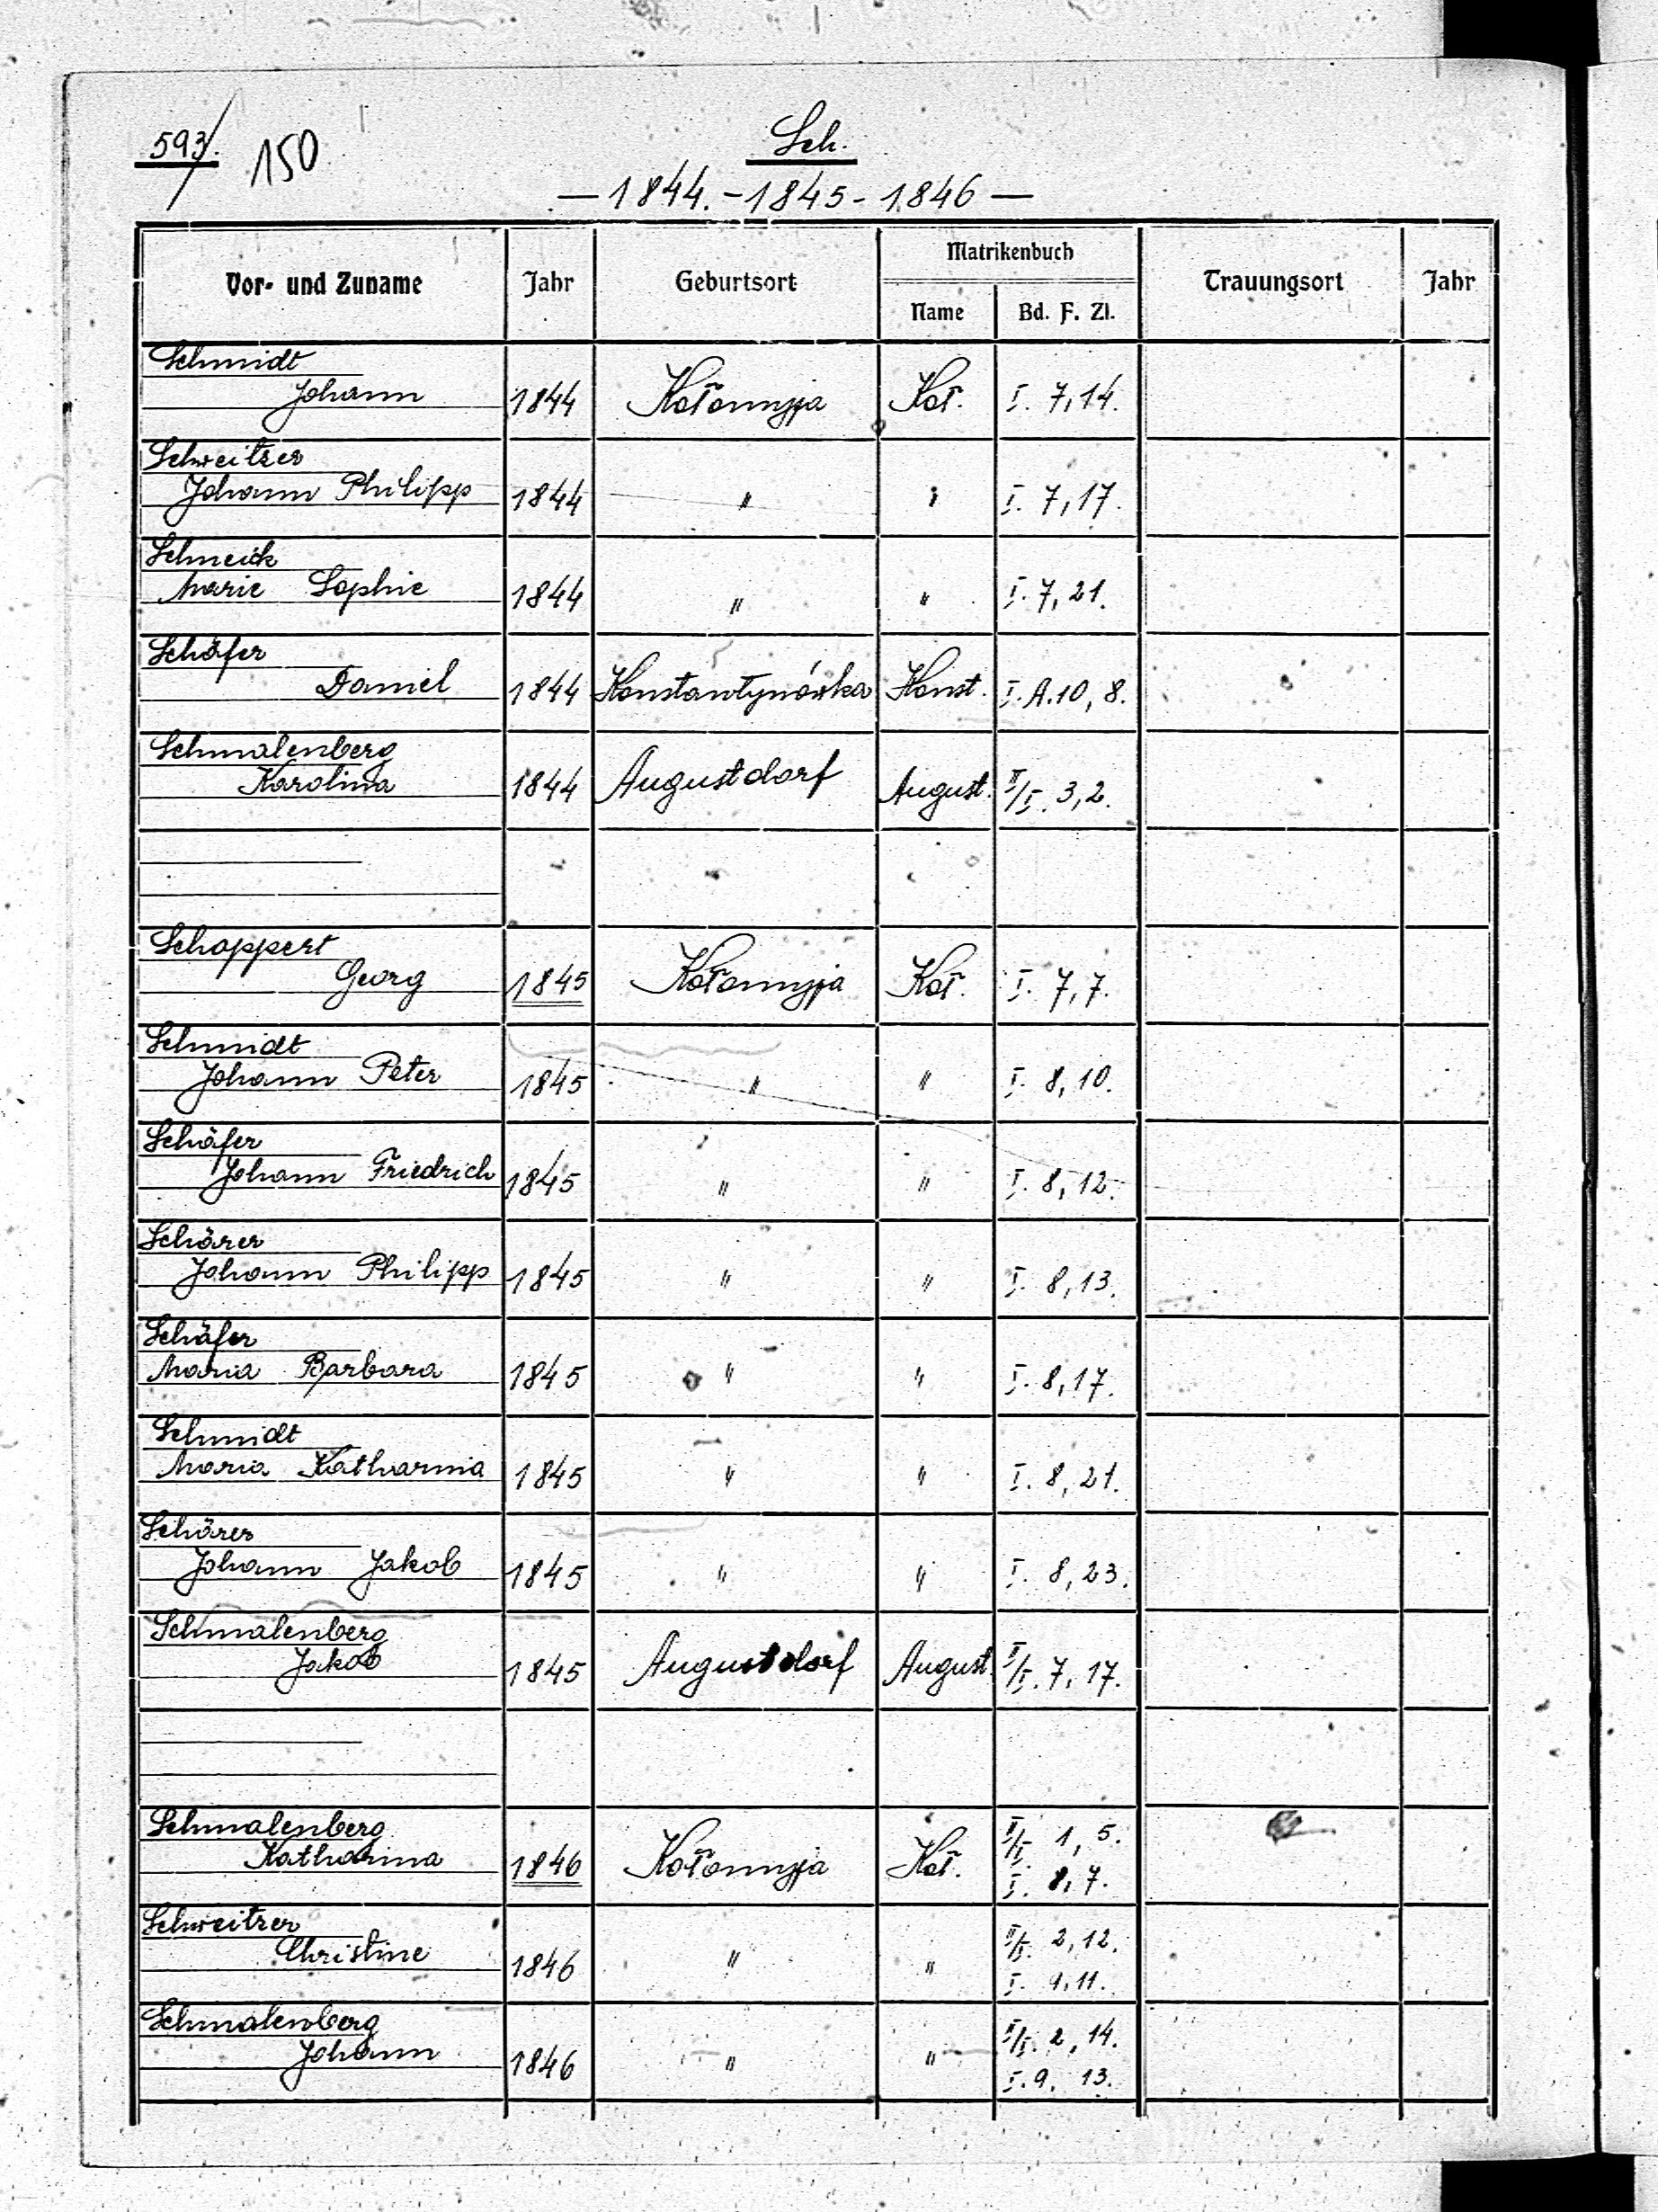 593/.
150
Sch.
— 1844. - 1845 - 1846 —
Vor- und Zuname Jahr Geburtsort Matrikenbuch Trauungsort Jahr
Name Bd. F. Zl.
Schmidt
Johann 1844 Kołomyja Koł. I. 7,14.
Schweitzer
Johann Philipp 1844 " " I. 7,17.
Schneick
Marie Sophie 1844 " " I. 7,21.
Schäfer
Daniel 1844 Konstantynówka Konst. I. A.10, 8.
Schmalenberg
Karolina 1844 Augustdorf August. II/I. 3,2.
Schappert
Georg 1845 Kołomyja Koł. I. 7,7.
Schmidt
Johann Peter 1845 " " I. 8,10.
Schäfer
Johann Friedrich 1845 " " I. 8,12.
Schärer
Johann Philipp 1845 " " I. 8,13.
Schäfer
Maria Barbara 1845 " " I. 8,17.
Schmidt
Maria Katharina 1845 " " I. 8,21.
Schärer
Johann Jakob 1845 " " I. 8,23.
Schmalenberg
Jakob 1845 Augustdorf August. II/I. 7,17.
Schmalenberg II/I. 1, 5.
Katharina 1846 Kołomyja Koł. I. 8,7.
Schweitzer
Christine 1846 " " II/I. 2,12.
I. 9,11.
Schmalenberg
Johann 1846 " " II/I. 2,14.
I. 9, 13.